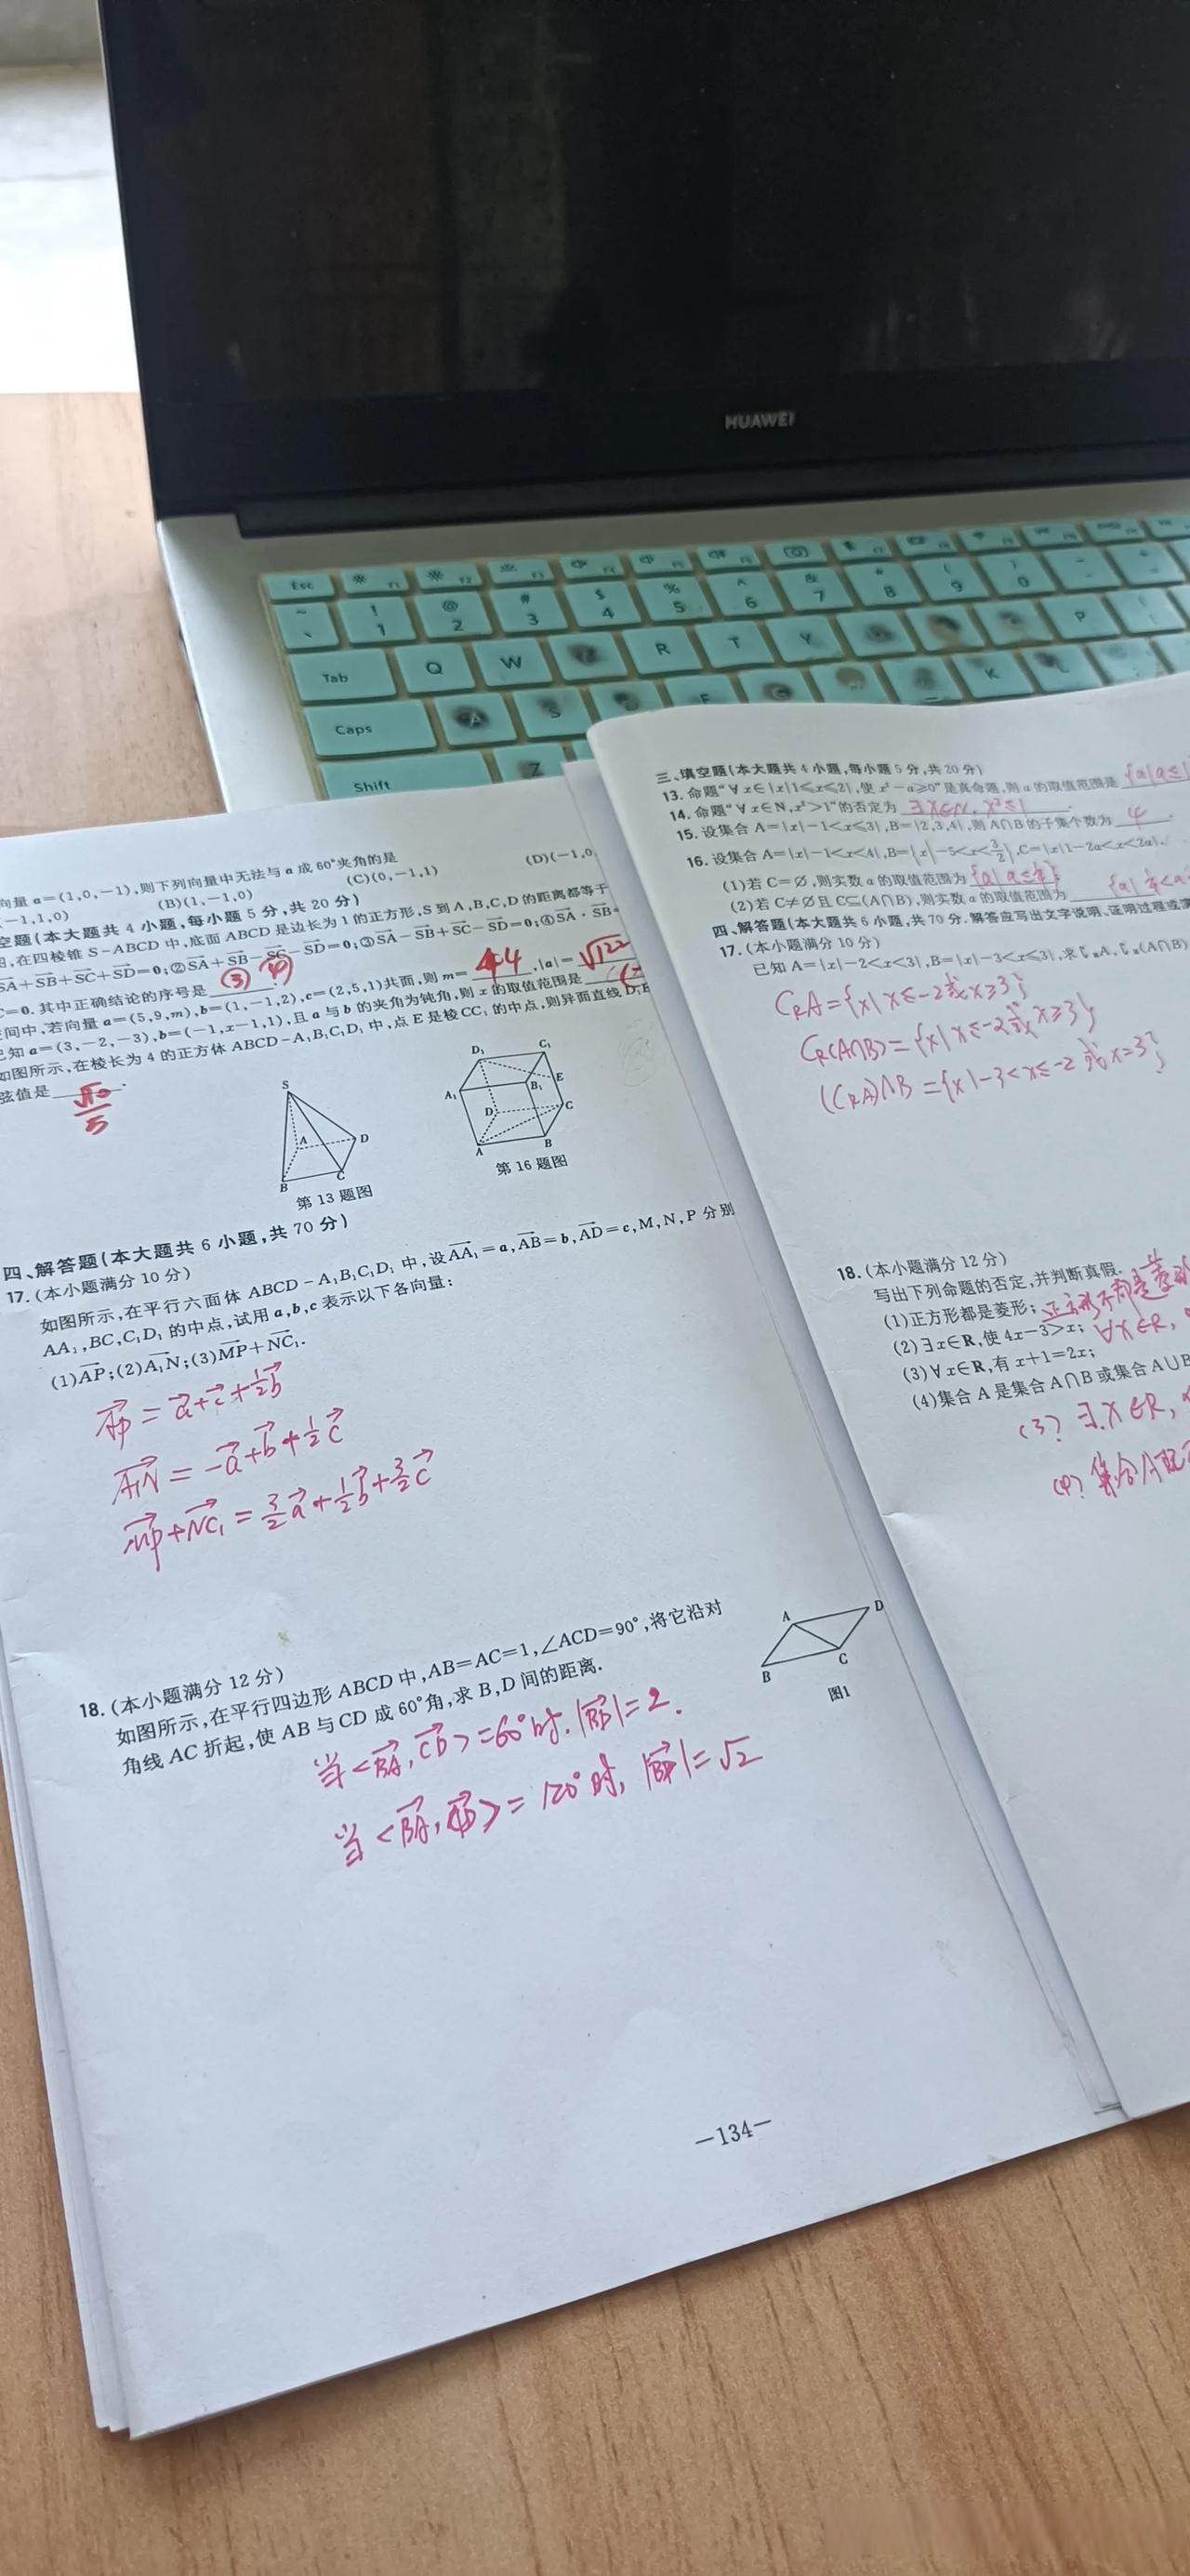 HUAWEI
Esc F1 F2 F3 F4 F5 F6 F7
~ ` ! 1 @ 2 # 3 $ 4 % 5 ^ 6 & 7 * 8 ( 9 ) 0
Tab Q W R T Y P
Caps A S F G K L
Shift Z
向量a=(1,0,-1),则下列向量中无法与a成60°夹角的是
-1,1,0) (B)(1,-1,0) (C)(0,-1,1) (D)(-1,0
空题(本大题共4小题,每小题5分,共20分)
,在四棱锥S-ABCD中,底面ABCD是边长为1的正方形,S到A,B,C,D的距离都等于
SA+SB+SC+SD=0;②SA+SB-SC-SD=0;③SA-SB+SC-SD=0;④SA·SB=
=0.其中正确结论的序号是 ③④
间中,若向量a=(5,9,m),b=(1,-1,2),c=(2,5,1)共面,则m= 4
已知a=(3,-2,-3),b=(-1,x-1,1),且a与b的夹角为钝角,则x的取值范围是
如图所示,在棱长为4的正方体ABCD-A₁B₁C₁D₁中,点E是棱CC₁的中点,则异面直线D₁E
弦值是 √10/5
S A D B C
第13题图
D₁ C₁ A₁ B₁ E D C A B
第16题图
四、解答题(本大题共6小题,共70分)
17.(本小题满分10分)
如图所示,在平行六面体ABCD-A₁B₁C₁D₁中,设AA₁=a,AB=b,AD=c,M,N,P分别
AA₁,BC,C₁D₁的中点,试用a,b,c表示以下各向量:
(1)AP;(2)A₁N;(3)MP+NC₁.
AP=a+c+1/2b
A₁N=-a+b+1/2c
MP+NC₁=3/2a+1/2b+3/2c
18.(本小题满分12分)
如图所示,在平行四边形ABCD中,AB=AC=1,∠ACD=90°,将它沿对
角线AC折起,使AB与CD成60°角,求B,D间的距离.
A D B C
图1
当<BA,CD>=60°时,|BD|=2.
当<BA,CD>=120°时,|BD|=√2
—134—
三、填空题(本大题共4小题,每小题5分,共20分)
13.命题“∀x∈{x|1≤x≤2},使x²-a≥0”是真命题,则a的取值范围是 {a|a≤1
14.命题“∀x∈N,x²>1”的否定为 ∃x∈N,x²≤1.
15.设集合A={x|-1<x≤3},B={2,3,4},则A∩B的子集个数为 4.
16.设集合A={x|-1<x<4},B={x|-5<x<3/2},C={x|1-2a<x<2a}.
(1)若C=∅,则实数a的取值范围为 {a|a≤1/4};
(2)若C≠∅且C⊆(A∩B),则实数a的取值范围为
四、解答题(本大题共6小题,共70分.解答应写出文字说明、证明过程或演
17.(本小题满分10分)
已知A={x|-2<x<3},B={x|-3<x≤3},求∁RA,∁R(A∩B)
CRA={x|x≤-2或x≥3};
CR(A∩B)={x|x≤-2或x≥3};
(CRA)∩B={x|-3<x≤-2或x=3};
18.(本小题满分12分)
写出下列命题的否定,并判断真假.
(1)正方形都是菱形; 正方形不都是菱形
(2)∃x∈R,使4x-3>x; ∀x∈R,
(3)∀x∈R,有x+1=2x;
(4)集合A是集合A∩B或集合A∪B
(3) ∃x∈R,
(4) 集合A既